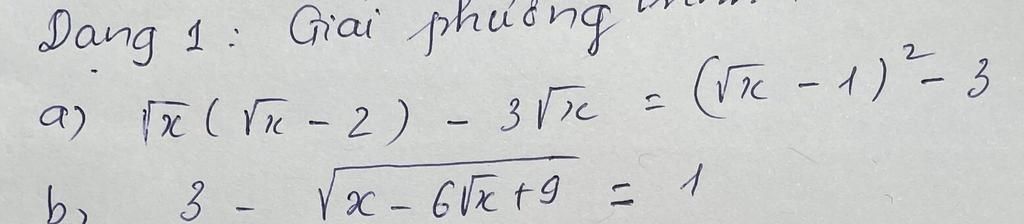 Dạng 1: Giai phương
a) √x(√x - 2) - 3√x = (√x - 1)² - 3
b) 3 - √(x - 6√x + 9) = 1